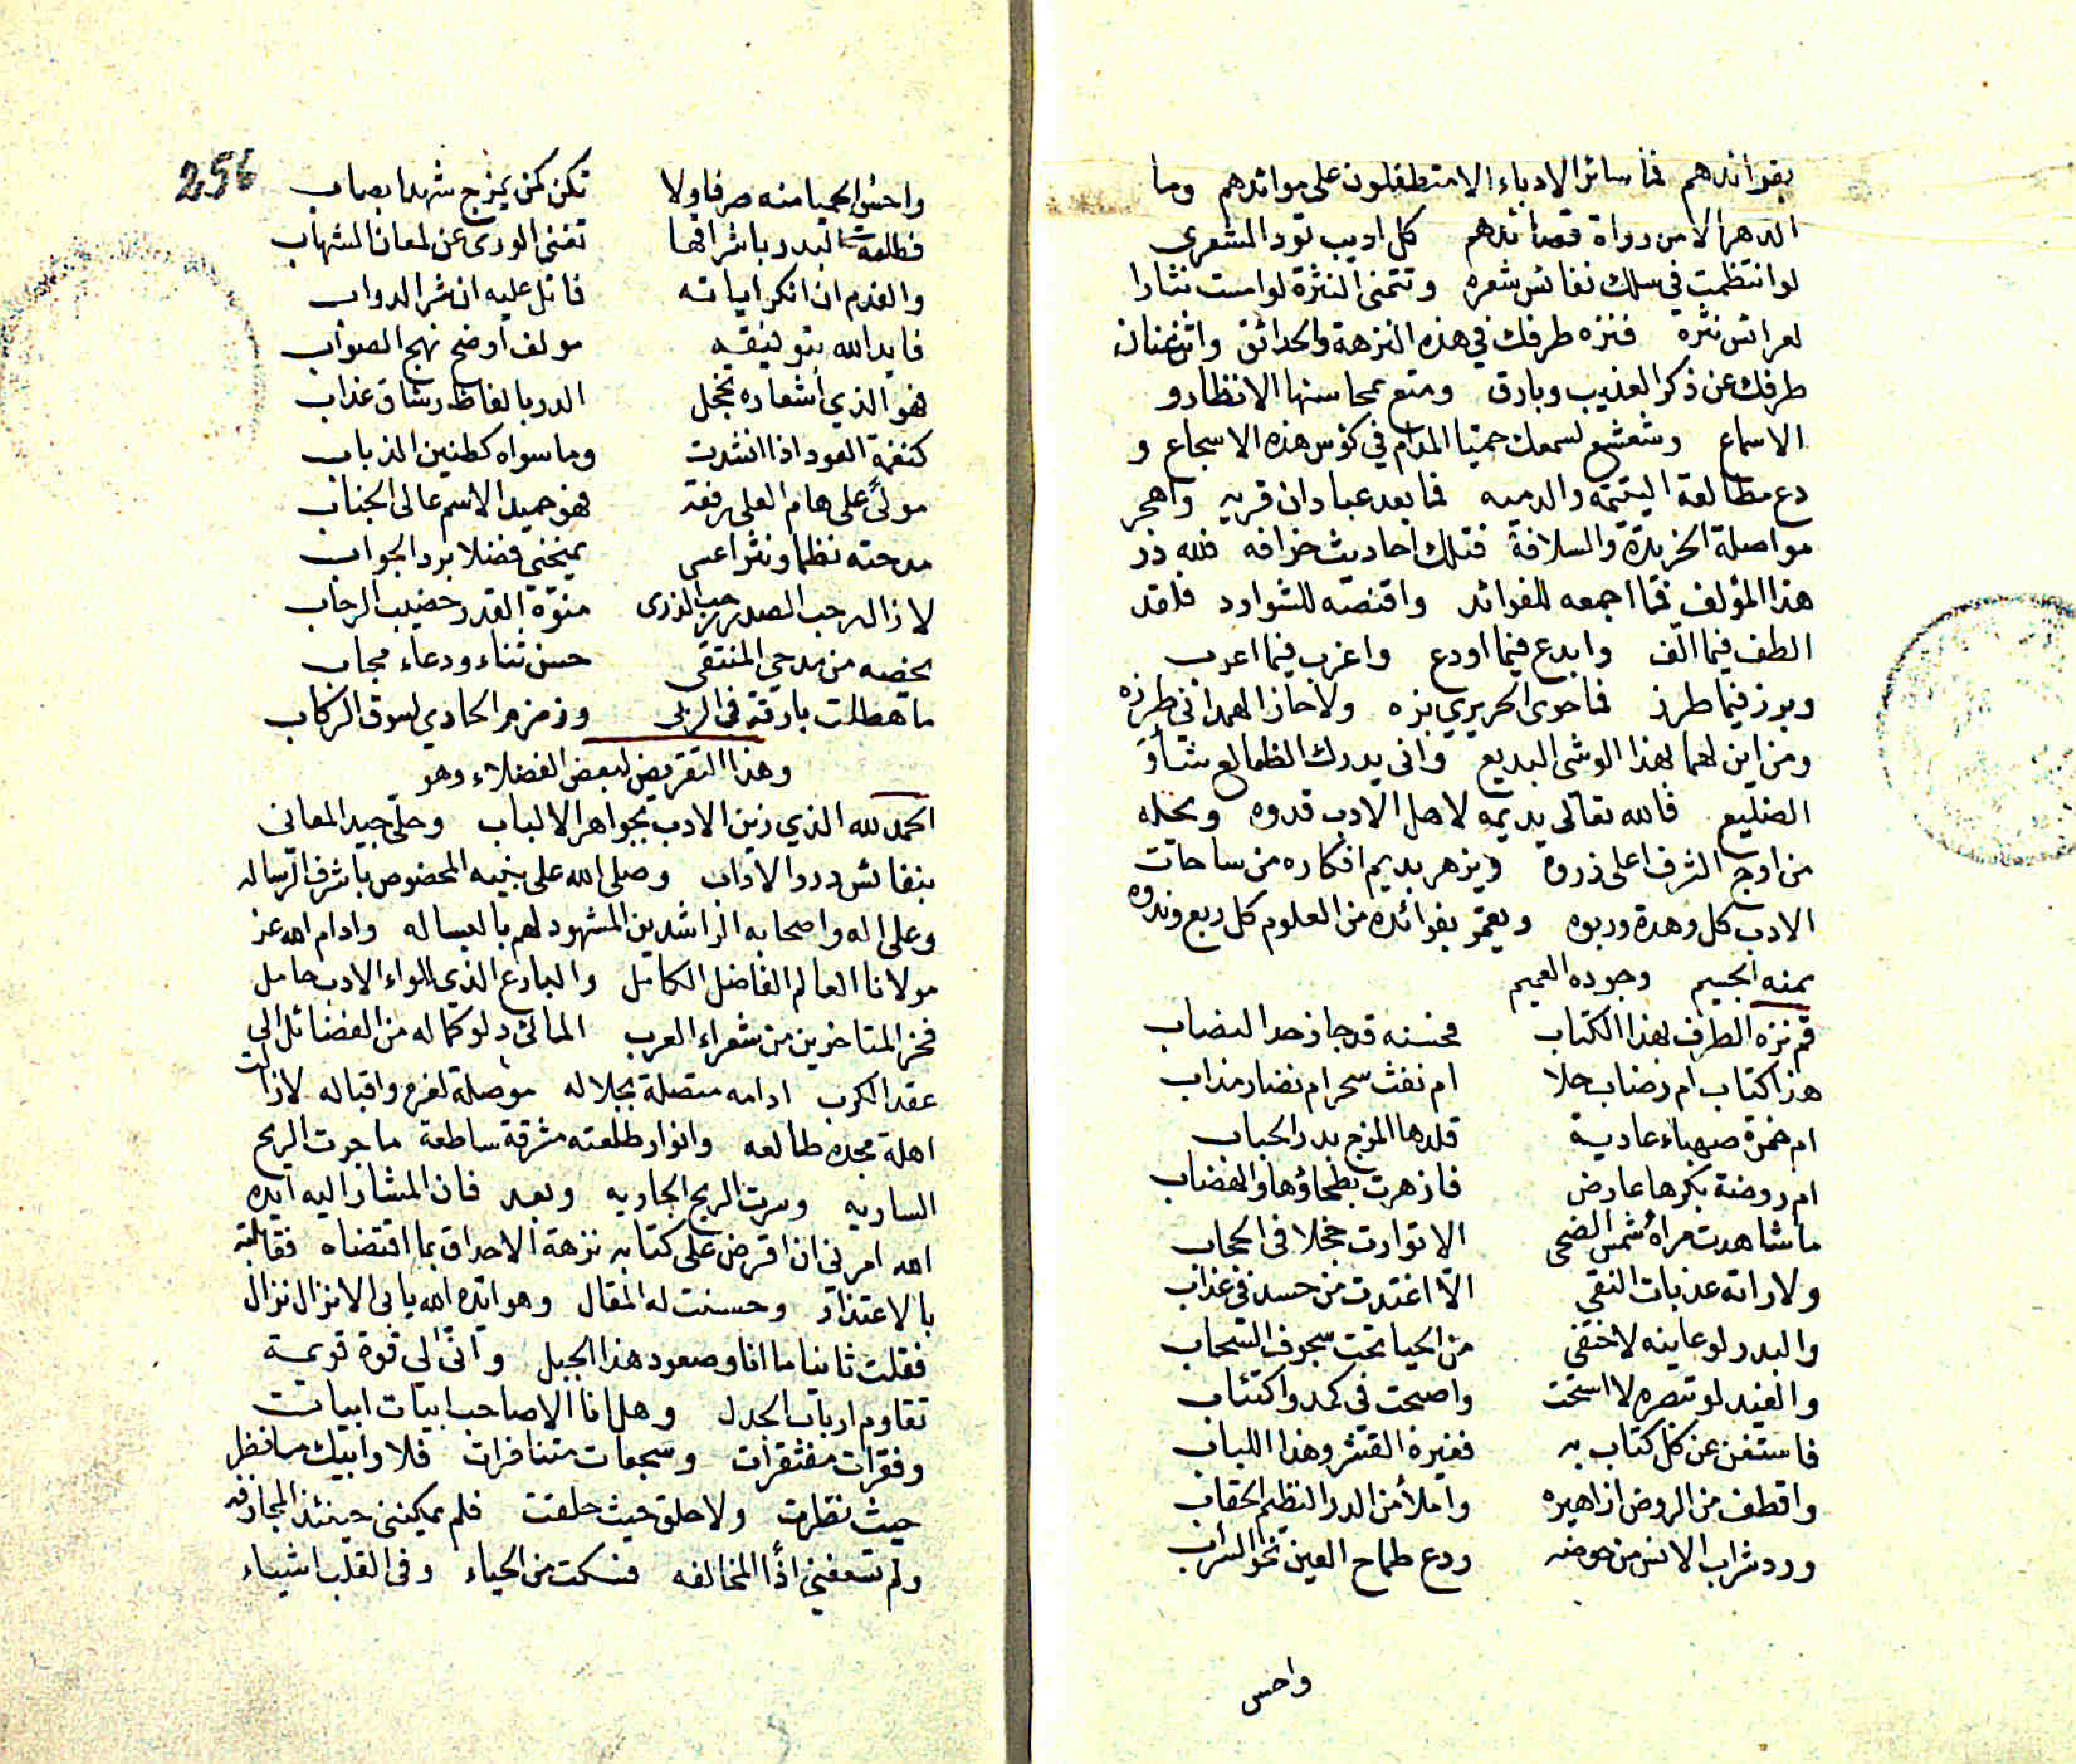 بفوائدهم فما سائر الادباء الا متطفلون على موائدهم وما
الدهر الا من رواة قصائدهم كل اديب تود الشعرى
لو انتظمت في سلك نفائس شعره وتتمنى النثرة لو امست نثارا
لعرائس نثره فنزه طرفك في هذه النزهة والحدائق واثن عنان
طرفك عن ذكر العذيب وبارق ومتع بمحاسنها الانظار و
الاسماع وشعشع لسمعك حميّا المدام في كؤس هذه الاسجاع و
دع مطالعة اليتيمة والدميه فما بعد عبادان قريه واهجر
مواصلة الخريدة والسلافة فتلك احاديث خرافه فلله در
هذا المؤلف فما اجمعه للفوائد واقنصه للشوارد فلقد
الطف فيما الّف وابدع فيما اودع واغرب فيما اعرب
وبرز فيما طرز فما حوى الحريري بزه ولا حاز الهمداني طرزه
ومن اين لهما بهذا الوشي البديع وانى يدرك الظالع شأو
الضليع فالله تعالى يديمه لاهل الادب قدوه ويحله
من اوج الشرف اعلى ذروه ويزهر بديم افكاره من ساحات
الادب كل وهدة وربوه ويعمّر بفوائده من العلوم كل ربع وندوه
بمنه الجسيم وجوده العميم
قم نزه الطرف بهذا الكتاب فحسنه قد جاز حد النصاب
هذا كتاب ام رضاب حلا ام نفث سحر ام نضار مذاب
ام خمرة صهباء عادية قلدها المزج بدر الحباب
ام روضة بكرها عارض فازهرت بطحاؤها والهضاب
ما شاهدت مرآه شمس الضحى الا توارت خجلا في الحجاب
ولا راته عذبات النقي الّا اغتدت من حسد في عذاب
والبدر لو عاينه لاختفى من الحيا تحت سجوف السحاب
والغيد لو تبصره لاستحت واصبحت في كمد واكتئاب
فاستغن عن كل كتاب به فغيره القشر وهذا اللباب
واقطف من الروض ازاهيره واملأ من الدر النظيم الحقاب
ورد شراب الانس من حوضه ودع طماح العين نحو السراب
واحس
256
واحسُ الحميا منه صرفا ولا تكن كمن يمزج شهدا بصاب
فطلعة البدر باشراقها تغني الورى عن لمعان الشهاب
والفدم ان انكر اياته فاتل عليه ان شر الدواب
فايد الله بتوفيقه مولف اوضح نهج الصواب
هو الذي اشعاره تخجل الدر بالفاظ رشاق عذاب
كنغمة العود اذا انشدت وما سواه كطنين الذباب
مولىً على هام العلى رفعة فهو حميد الاسم عالى الجناب
مدحته نظما ونثرا عسى يمنحني فضلا برد الجواب
لا زال رحب الصدر رحب الذرى منوّه القدر خضيب الرحاب
يخصه من مدحي المنتقى حسن ثناء ودعاء مجاب
ما هطلت بارقة في الربى وزمزم الحادي لسوق الركاب
وهذا التقريض لبعض الفضلاء وهو
الحمد لله الذي زين الادب بجواهر الالباب وحلّى جيد المعاني
بنفائس درر الاداب وصلى الله على نبيه المخصوص باشرف الرساله
وعلى اله واصحابه الراشدين المشهود لهم بالبساله وادام الله عز
مولانا العالم الفاضل الكامل والبارع الذي للواء الادب حامل
فخر المتاخرين من شعراء العرب المالئ دلو كماله من الفضائل الى
عقد الكرب ادامه متصلة بجلاله موصلة لعزه واقباله لا زالت
اهلة مجده طالعه وانوار طلعته مشرقة ساطعة ما جرت الريح
الساريه وسرت الريح الجاريه وبعد فان المشار اليه ايده
الله امرني ان اقرض على كتابه نزهة الاحداق بما اقتضاه فقابلته
بالاعتذار وحسنت له المقال وهو ايده الله يابى الا نزال نزال
فقلت ثانيا ما انا وصعود هذا الجبل وانّى لي قوة قويمة
تقاوم ارباب الجدل وهل انا الا صاحب ابيات ابيات
وفقرات مفتقرات وسجعات متنافرات فلا وابيك ما نظر
حيث نظرت ولا حلق حيث حلقت فلم يمكنني حينئذ المجازفه
ولم تسعفني اذًا المخالفه فسكت من الحياء وفي القلب اشياء